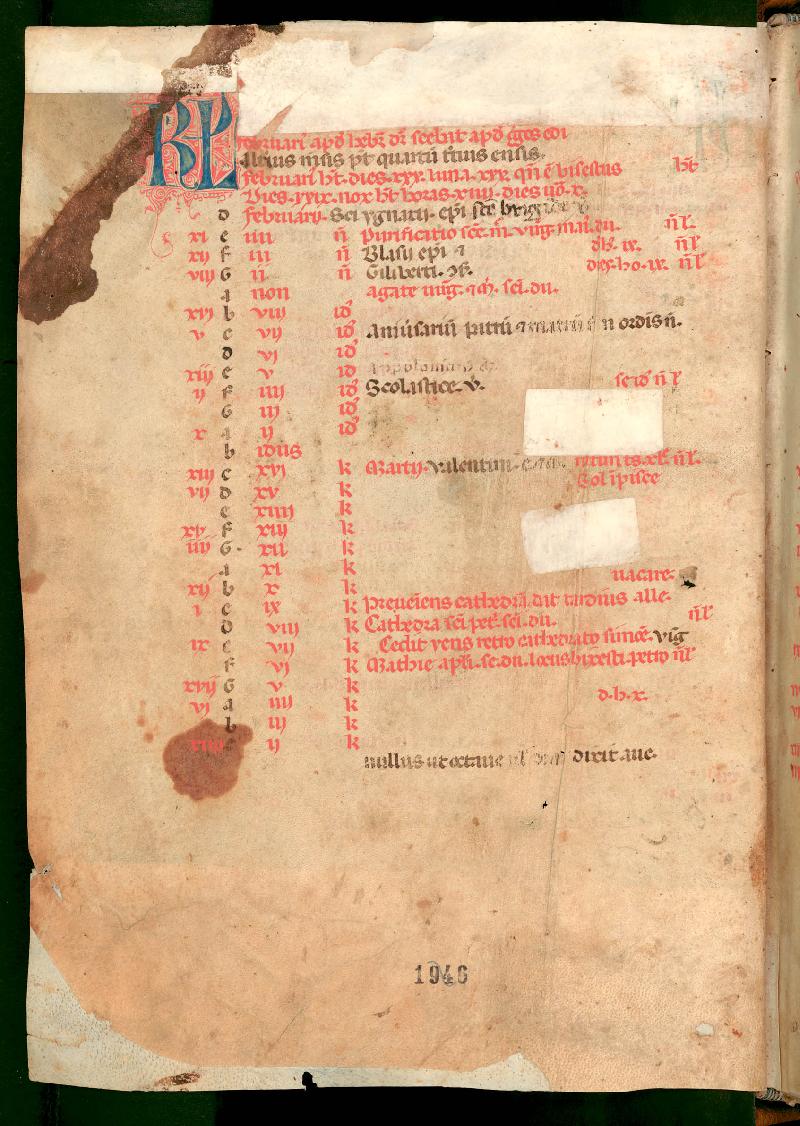 KL
februari apd hebr dr scebat apd gcos
Alcius nisis pt quartu tcius ensis.
februari ht. dies. xxx. luna. xxx. qn e bisestus ht
Dies. xxix. nox ht horas. xiiij. dies uo. x.
D februarij. Sci ygnatij. epi sce brigide
xi e iiii n Purificatio sce. m. uirg. mai. du. nl.
xij f iii n Blasij epi db. ix. nl
viij G n n Giliberti. 9f. dies. ho. ix. nl
a non agate uirg. m. sci. du.
xvj b viij id
v c vij id Aniusariu patru matru n ordis n.
D vj id
xiij e v id appolonia
ij f iiij id Scolastice. v. nl
G iij id
x a ij id
b idus
xiij c xvj k Marty. valentini nl.
vij D xv k Sol i pisce
e xiiij k
xv f xiij k
iiij G xii k
a xi k uacare.
xij b x k
i c ix k Preueiens cathedra dat tardius alle
D viij k Cathedra sci pet. sci. du. nl
ix e vij k Cedit yens retro cathedrato simoe. vig
f vj k Mathie apli. se. du. locus bixesti. retto nl
xvij G v k d. h. x.
vj a iiij k
b iij k
xiiij c ij k
nullus ut octaue dixit aue.
1946